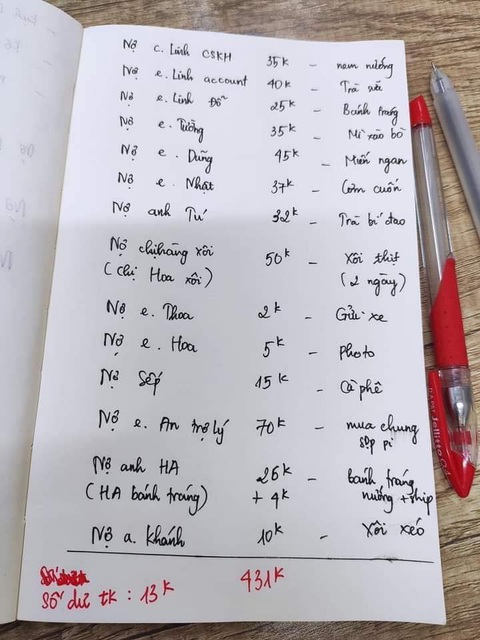 Nợ c. Linh CSKH 35k – nem nướng
Nợ e. Linh account 40k – Trà sữa
Nợ e. Linh Đỗ 25k – Bánh tráng
Nợ e. Tưởng 35k – Mì xào bò
Nợ e. Dũng 45k – Miến ngan
Nợ e. Nhật 37k – Cơm cuốn
Nợ anh Tú 32k – Trà bí đao
Nợ chị hàng xôi 50k – Xôi thịt
(chị Hoa xôi) (2 ngày)
Nợ e. Thoa 2k – Gửi xe
Nợ e. Hoa 5k – Photo
Nợ Sếp 15k – Cà phê
Nợ e. An trợ lý 70k – mua chung
sốp pi
Nợ anh HA 26k – bánh tráng
(HA bánh tráng) + 4k nướng + ship
Nợ a. Khánh 10k – Xôi xéo
431k
Số dư tk : 13k